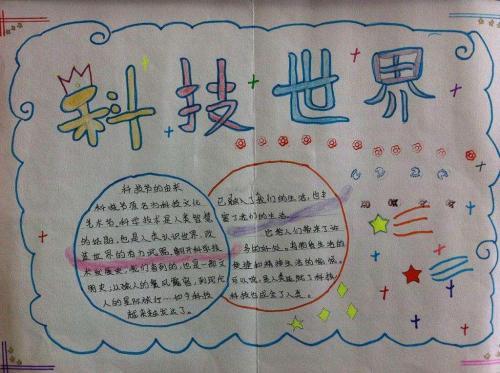 科技世界
科技节的由来
科技节原名为科技文化
艺术节。科学技术是人类智慧
的结晶,也是人类认识世界、改
造世界的有力武器。翻开科学技
术发展史,我们看到的,也是一部文
明史;从猿人的
到现代
人的星际旅行……如今科技
越来越发达了。
已融入了我们的生活,也丰
富了我们的生活。
它给人们带来了许
多的好处。有拥有生活的
便捷和精神生活的愉悦。
可以说,是人类成就了科技,
科技也成全了人类。